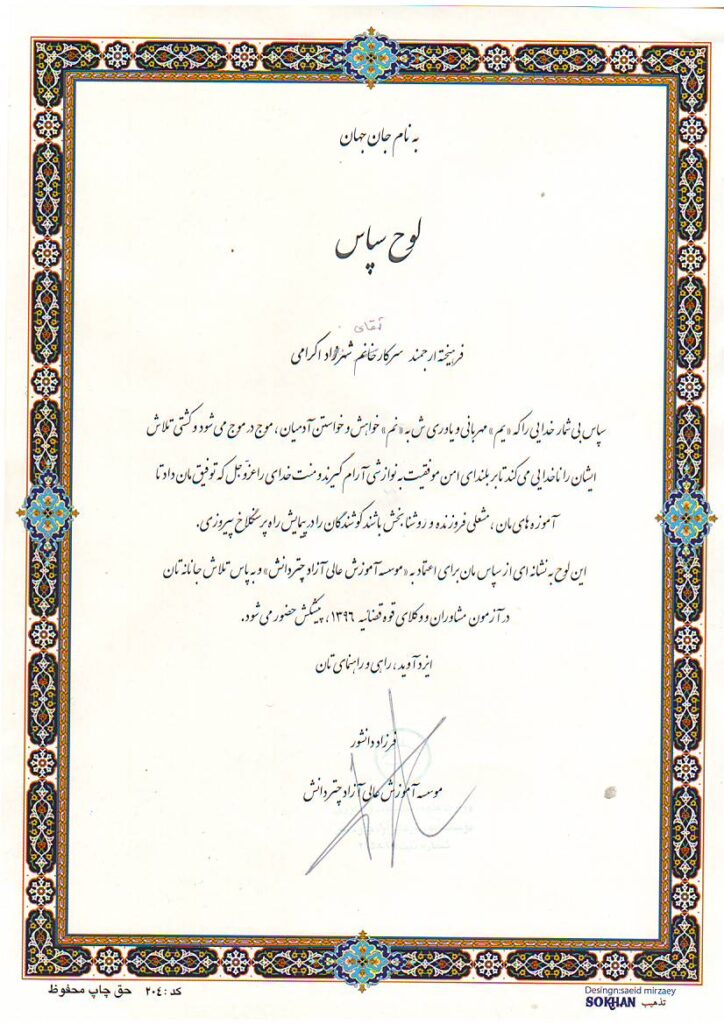 به نام جان جهان
لوح سپاس
آقای
فرهیخته ارجمند سرکار خانم شهرزاد اکرامی
سپاس بی شمار خدایی را که «یم» مهربانی و یاوری ش به «نم» خواهش و خواستن آدمیان، موج در موج می شود و کشتی تلاش
ایشان را ناخدایی می کند تا بر بلندای امن موفقیت به نوازشی آرام گیرند و منت خدای را عزّوجل که توفیق مان داد تا
آموزه های مان، مشعلی فروزنده و روشنا بخش باشند کوشندگان را در پیمایش راه پر سنگلاخ پیروزی.
این لوح به نشانه ای از سپاس مان برای اعتماد به «موسسه آموزش عالی آزاد چتر دانش» و به پاس تلاش جانانه تان
در آزمون مشاوران و وکلای قوه قضائیه ۱۳۹۶، پیشکش حضور می شود.
ایزد آوید، راهی و راهنمای تان
فرزاد دانشور
موسسه آموزش عالی آزاد چتر دانش
کد : ۲۰۴ حق چاپ محفوظ
Desingn:saeid mirzaey
تذهیب SOKHAN